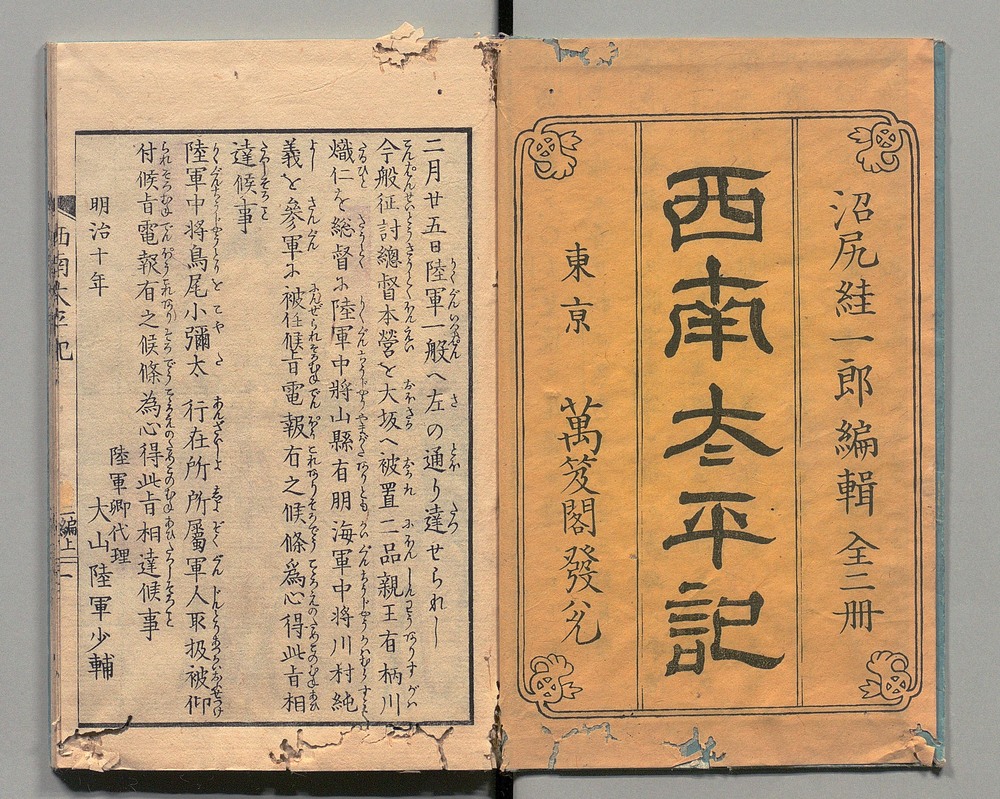 沼尻絓一郎編輯 全二冊
西南太平記
東京 萬笈閣發兌
二月廿五日陸軍一般へ左の通り達せられし
今般征討總督本營を大坂へ被置二品親王有栖川
熾仁を総督に陸軍中將山縣有朋海軍中将川村純
義を參軍に被任候旨電報有之候條為心得此旨相
達候事
陸軍中将鳥尾小彌太 行在所所屬軍人取扱被仰
付候旨電報有之候條為心得此旨相達候事
明治十年
陸軍卿代理
大山陸軍少輔
西南太平記
一編上